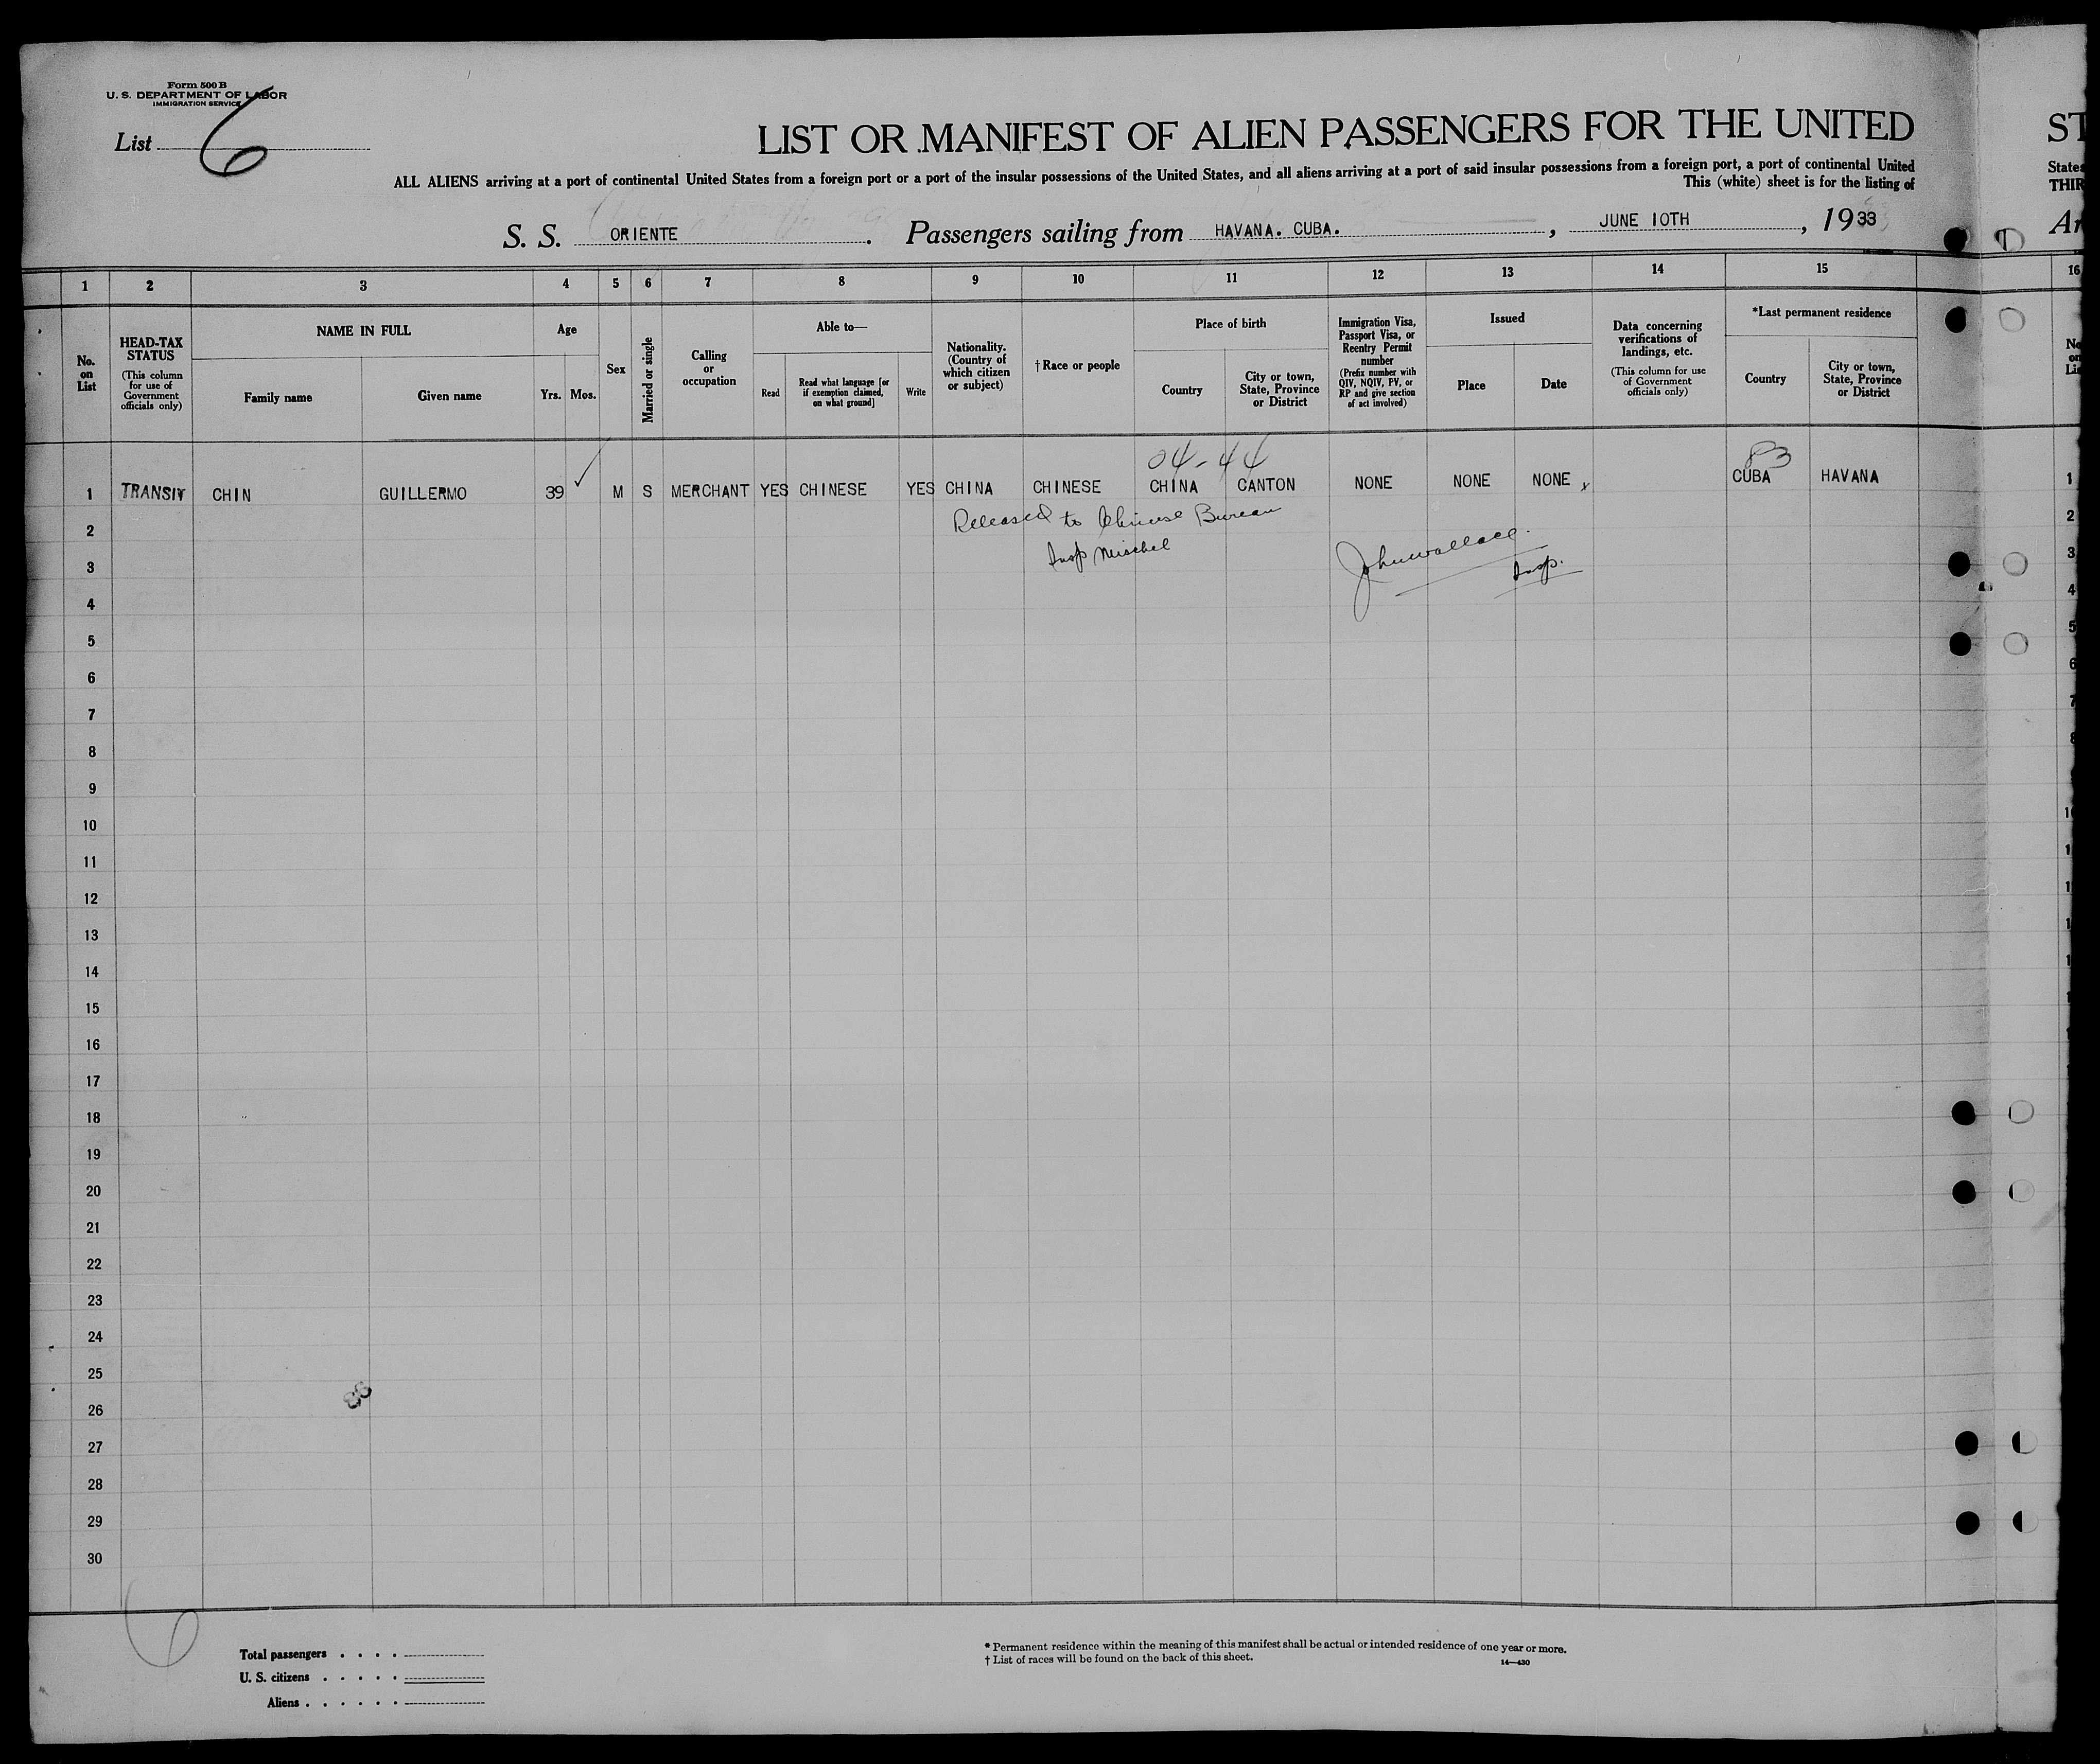 Form 500 B
U. S. DEPARTMENT OF LABOR
IMMIGRATION SERVICE
List 6
LIST OR MANIFEST OF ALIEN PASSENGERS FOR THE UNITED
ALL ALIENS arriving at a port of continental United States from a foreign port or a port of the insular possessions of the United States, and all aliens arriving at a port of said insular possessions from a foreign port, a port of continental United
This (white) sheet is for the listing of
S. S. ORIENTE. Passengers sailing from HAVANA. CUBA., JUNE 10TH, 1933
ST
States
THIR
Ar
1 2 3 4 5 6 7 8 9 10 11 12 13 14 15 16
No. on List
HEAD-TAX STATUS
(This column for use of Government officials only)
NAME IN FULL
Family name
Given name
Age
Yrs. Mos.
Sex
Married or single
Calling or occupation
Able to—
Read
Read what language [or if exemption claimed, on what ground]
Write
Nationality. (Country of which citizen or subject)
† Race or people
Place of birth
Country
City or town, State, Province or District
Immigration Visa, Passport Visa, or Reentry Permit number
(Prefix number with QIV, NQIV, PV, or RP and give section of act involved)
Issued
Place
Date
Data concerning verifications of landings, etc.
(This column for use of Government officials only)
*Last permanent residence
Country
City or town, State, Province or District
04-44
83
1 TRANSIT CHIN GUILLERMO 39 ✓ M S MERCHANT YES CHINESE YES CHINA CHINESE CHINA CANTON NONE NONE NONE x CUBA HAVANA 1
Released to Chinese Bureau
2
Insp Mischel
John Wallace
Insp.
3
4
5
6
7
8
9
10
11
12
13
14
15
16
17
18
19
20
21
22
23
24
25
26
27
28
29
30
6
Total passengers . . . .
U. S. citizens . . . . .
Aliens . . . . . .
* Permanent residence within the meaning of this manifest shall be actual or intended residence of one year or more.
† List of races will be found on the back of this sheet.
14—430